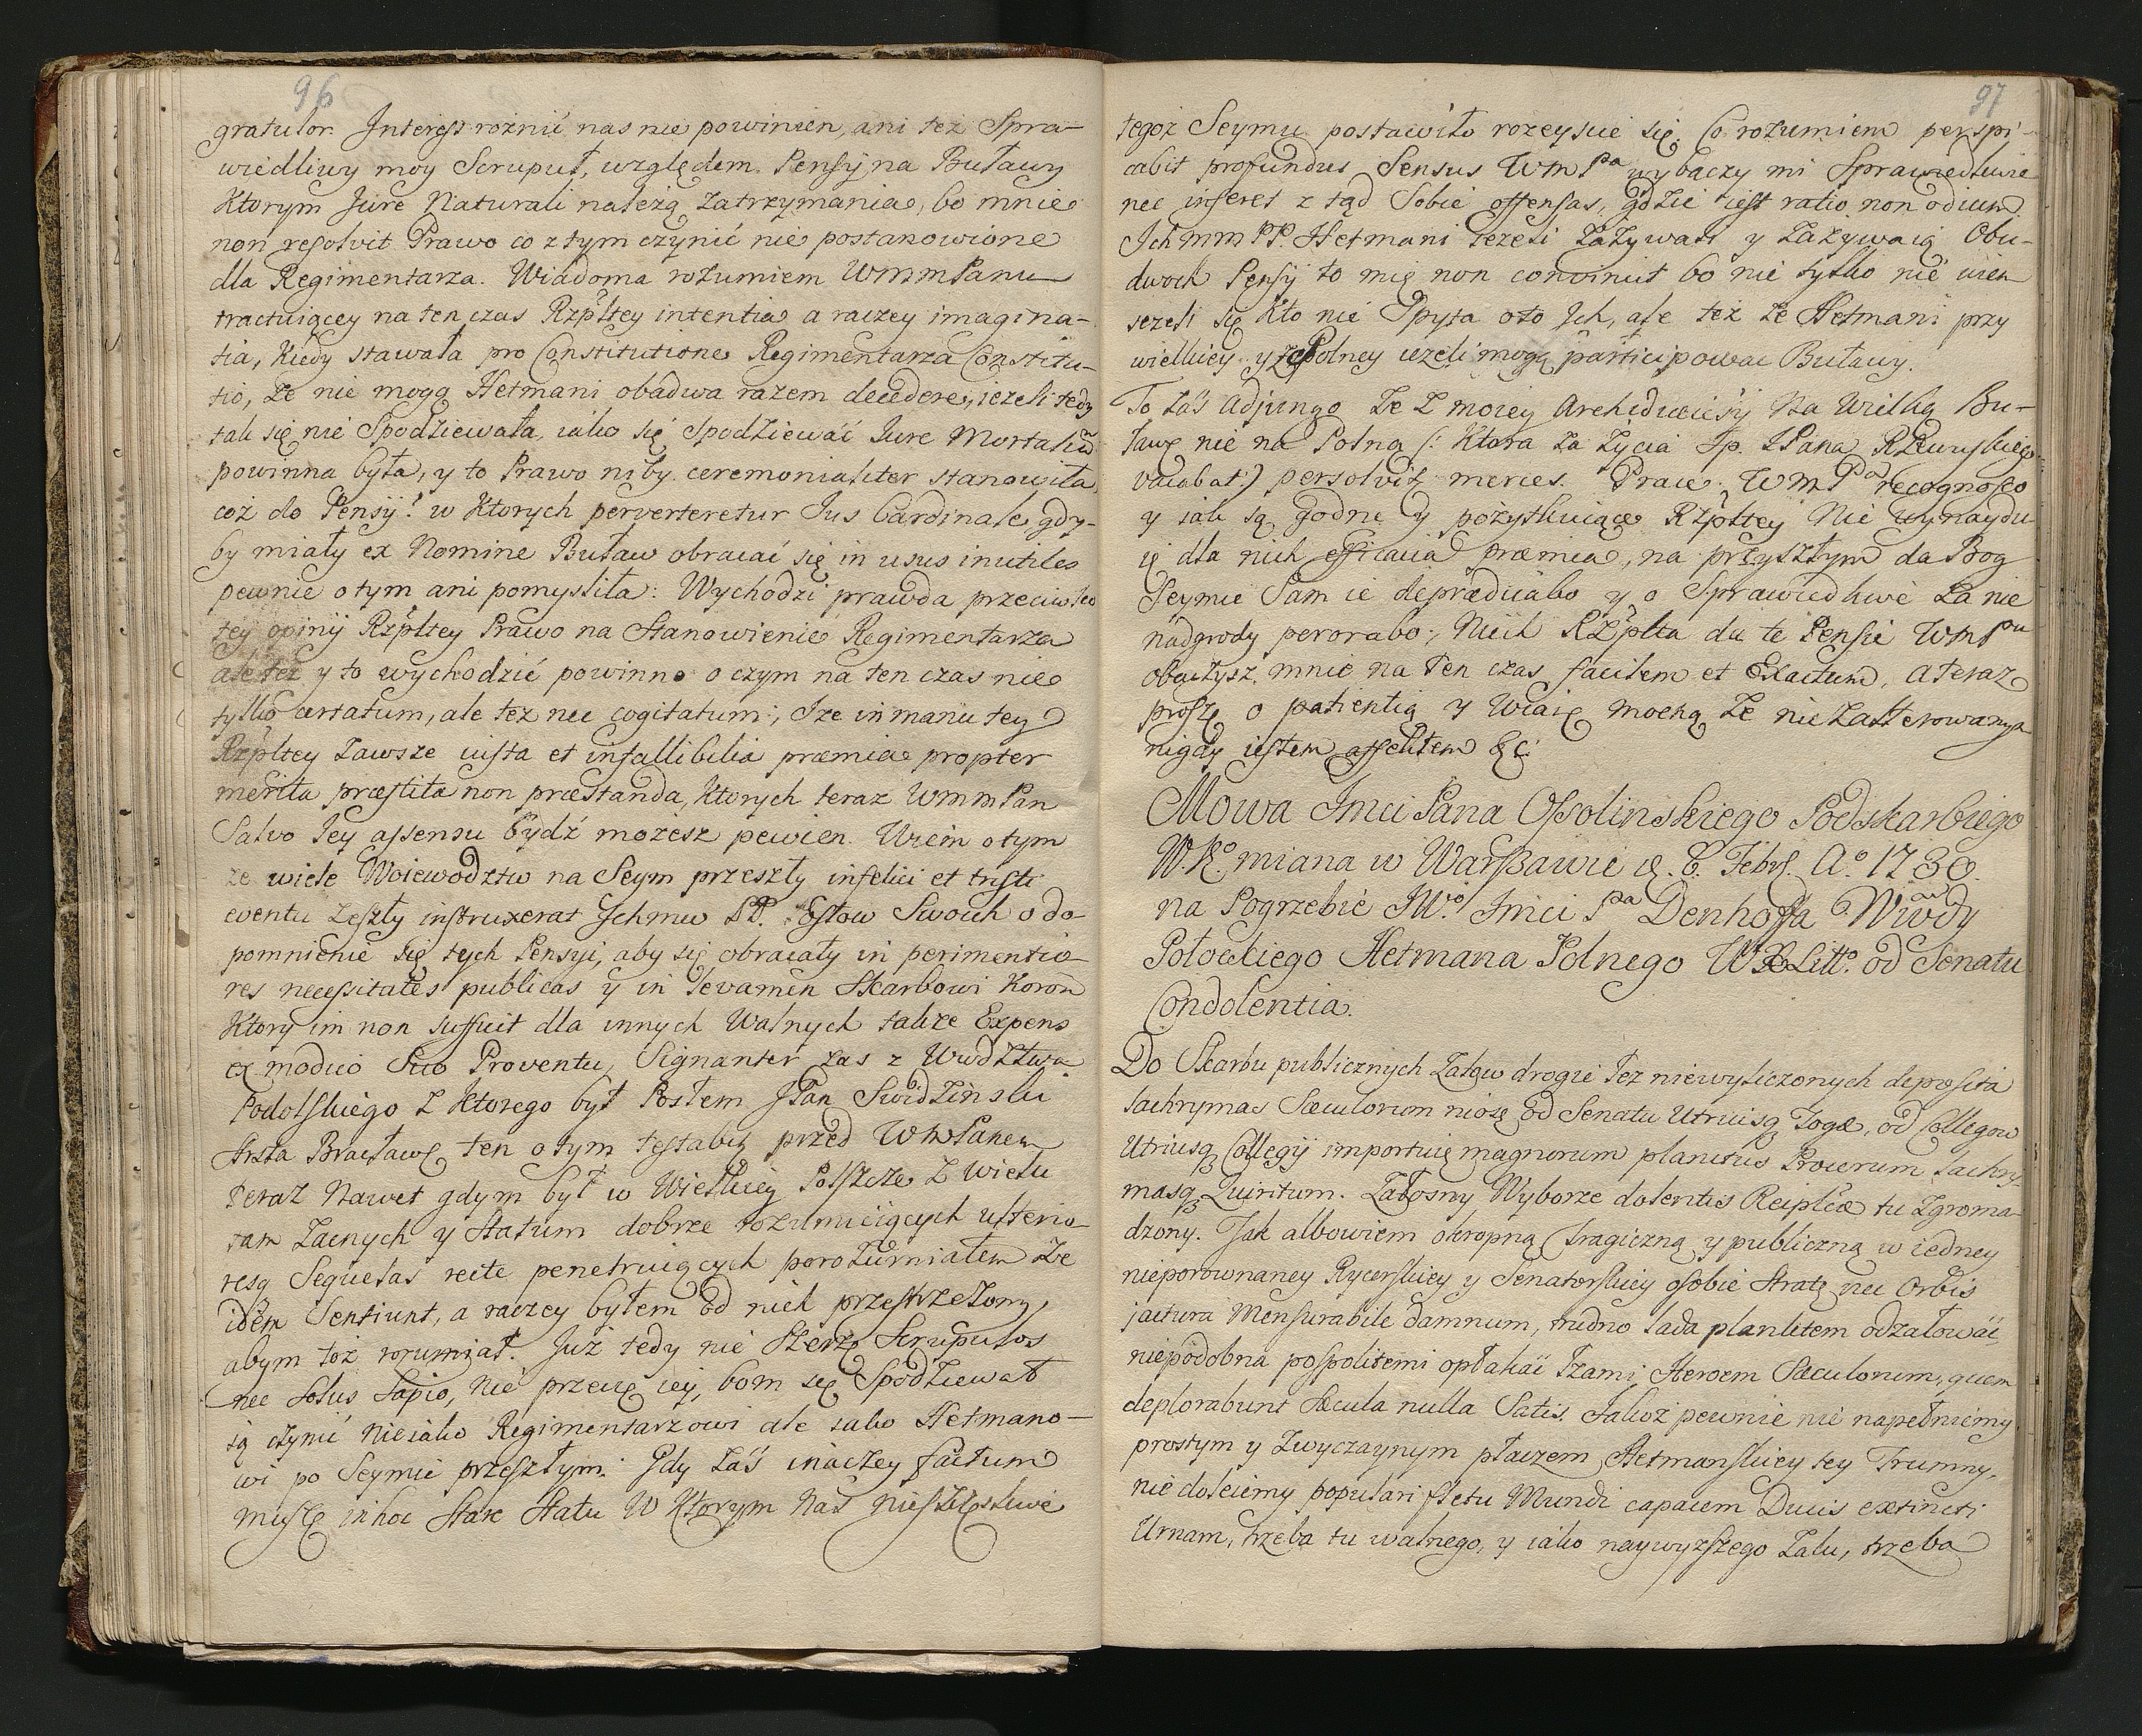 96
gratulor. Interess roznić nas nie powinien, ani tez Spra-
wiedliwy moy Scrupuł, względem Pensij na Buławy
Ktorym Jure Naturali należą zatrzymania, bo mnie
non resolvit Prawo co z tym czynić nie postanowione
dla Regimentarza. Wiadoma rozumiem WmmPanu
tractuiącey na ten czas Rzpltey intentia a raczey imagina-
tia, kiedy stawała pro Constitutione Regimentarza Constitu-
tio, że nie mogą Hetmani obadwa razem decedere, ieżeli tedy
tak się nie Spodziewała, iako się Spodziewać Jure Mortaliũ
powinna była, y to Prawo niby ceremonialiter stanowiła,
coż do Pensij? w Ktorych perverteretur Jus Cardinale gdy-
by miały ex Nomine Buław obracać się in usus inutiles
pewnie o tym ani pomyslila: Wychodzi prawda przeciwko
tey opinij Rzpltey Prawo na Stanowienie Regimentarza
ale też y to wychodzić powinno o czym na ten czas nie
tylko certatum, ale tez nec cogitatum; Iże in manu tey
Rzpltey zawsze iusta et infallibilia præmia propter
merita præstita non præstanda, ktorych teraz WmmPan
Salvo Jey assensu bydź możesz pewien. Wiem o tym
że wiele Woiewodztw na Seym przeszły infelici et tristi
eventu zeszły instruxerat Ichmw PP. Posłow Swoich o do-
pomnienie się tych Pensyi, aby się obracały in perimentio-
res necessitates publicas y in levamen Skarbowi Koroñ
Ktory im non sufficit dla innych Walnych także Expens
ex modico Suo Proventu, Signanter zas z Wwdztwa
Podolskiego z Ktorego był Posłem JPan Swidzinski
Strsta Bracławs. ten o tym testabit przed WmPanem
Teraz Nawet gdym był w Wielkiey Polszcze z wielu
tam Zacnych y Statum dobrze rozumieiących ulterio-
resq Sequelas recte penetruiących porozumiałem że
idem Sentiunt, a raczey byłem od nich przestrzeżony,
abym toż rozumiał. Już tedy nie Szerzę Scrupulos
nec Solus Sapio, nie przeczę iey, bom się Spodziewał
ią czynić nie iako Regimentarzowi ale iako Hetmano-
wi po Seymie przeszłym. Gdy zaś inaczey factum
muszę in hoc Stare Statu w Ktorym Nas nieszczęśliwe
97
tegoż Seymu postawiło rozeyscie się. Co rozumiem perspi-
cabit profundus Sensus WmPa wybaczy mi Sprawiedliwie
nec inferet z tąd Sobie offensas, gdzie iest ratio non odium.
Ichmm PP. Hetmani ieżeli zażywali y zażywaią Obu-
dwoch Pensij to mię non convincit bo nie tylko nie wiem
ieżeli się kto nie Spyta oto Ich, ale też że Hetmani przy
wielkiey y Polney ieżeli mogą participować Buławy.
To zaś adjungo że z moiey Archidiœcesij na Wielką Bu-
ławę nie na Polną (: Ktora za życia Sp. JPana Rzewuskiego
vacabat:) persolvit merces. Prace WmPa recognosco
y iak są godne y pożytkuiące Rzpltey Nie wynaydu-
ię dla nich efficacia præmia, na przyszłym da Bog
Seymie Sam ie deprædicabo y o Sprawiedliwe za nie
nadgrody perorabo; Niech Rzplta da te Pensie WmPu
obaczysz mnie na ten czas facilem et Exactum, a teraz
proszę o patientią y Wiarę mocną że nie zalterowanym
nigdy iestem affektem &c.
Mowa Jmci Pana Ossolinskiego Podskarbiego
W.K.o miana w Warszawie d. 6. Febr. A.o 1730.
na Pogrzebie JW.o Jmci Pa Denhoffa Wiwdy
Połockiego Hetmana Polnego W X Litt.o od Senatu
Condolentia.
Do Skarbu publicznych żalow drogie łez niewyliczonych deposita
lachrymas Sæculorum niosę od Senatu Utriusq Togæ, od Collegow
Utriusq Collegij importuię magnorum planctus Procerum lachry-
masq Quiritum. Żałosny Wyborze dolentis Reiplcæ tu zgroma-
dzony. Jak albowiem okropną tragiczną y publiczną w iedney
nieporownaney Rycerskiey y Senatorskiey osobie Stratę nec Orbis
jactura Mensurabile damnum, trudno lada planktem odzałować
niepodobna pospolitemi opłakać łzami Heroem Sæculorum, quem
deplorabunt Sæcula nulla Satis. Jakoż pewnie nie napełniemy
prostym y zwyczaynym płaczem Hetmanskiey tey Trumny,
nie doleiemy populari fletu Mundi capacem Ducis extincti
Urnam, trzeba tu walnego, y iako naywyższego żalu, trzeba